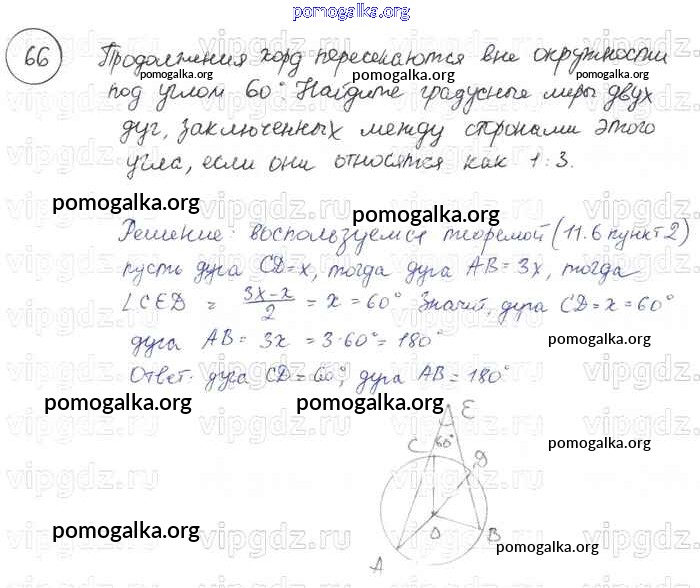 pomogalka.org
66
Продолжения хорд пересекаются вне окружности
pomogalka.org pomogalka.org
под углом 60°. Найдите градусные меры двух
дуг, заключенных между сторонами этого
угла, если они относятся как 1:3.
pomogalka.org pomogalka.org
Решение: воспользуемся теоремой (11.6 пункт 2)
пусть дуга CD=x, тогда дуга AB=3x, тогда
∠CED = 3x-x/2 = x = 60° Значит, дуга CD=x=60°
дуга AB= 3x = 3·60°= 180°
Ответ. дуга CD=60°, дуга AB=180°
pomogalka.org pomogalka.org
E
C 60° D
pomogalka.org
O
B
A
pomogalka.org pomogalka.org
vipgdz.ru